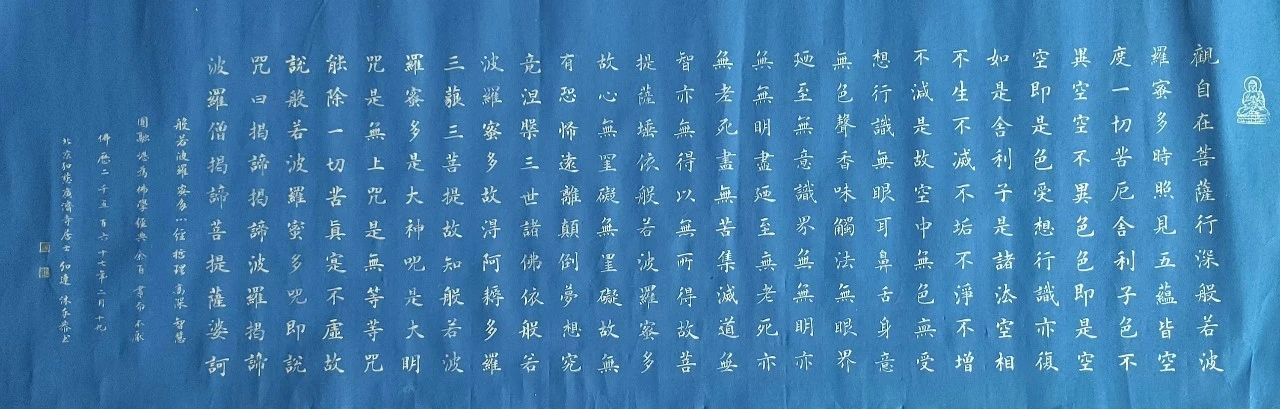 觀自在菩薩行深般若波
羅蜜多時照見五蘊皆空
度一切苦厄舍利子色不
異空空不異色色即是空
空即是色受想行識亦復
如是舍利子是諸法空相
不生不滅不垢不淨不增
不減是故空中無色無受
想行識無眼耳鼻舌身意
無色聲香味觸法無眼界
廼至無意識界無無明亦
無無明盡廼至無老死亦
無老死盡無苦集滅道無
智亦無得以無所得故菩
提薩埵依般若波羅蜜多
故心無罣礙無罣礙故無
有恐怖遠離顛倒夢想究
竟涅槃三世諸佛依般若
波羅蜜多故得阿耨多羅
三藐三菩提故知般若波
羅蜜多是大神呪是大明
咒是無上咒是無等等咒
能除一切苦真寔不虛故
說般若波羅蜜多呪即說
咒曰揭諦揭諦波羅揭諦
波羅僧揭諦菩提薩婆訶
般若波羅蜜多心經哲理高深智慧
圓融堪為佛學經典余百書而不厭
佛曆二千五百六十七年十二月十九
北京廣濟寺居士沐手恭書